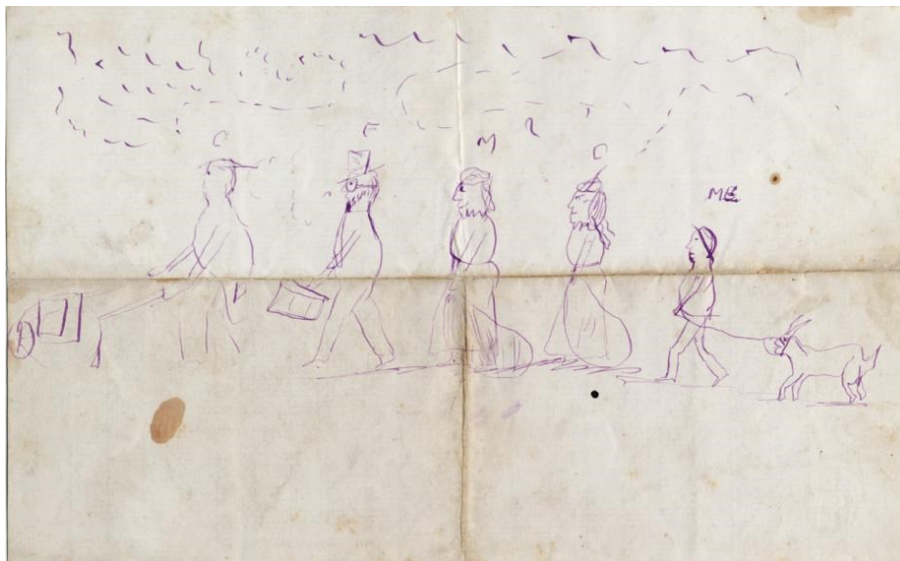 C F M ME